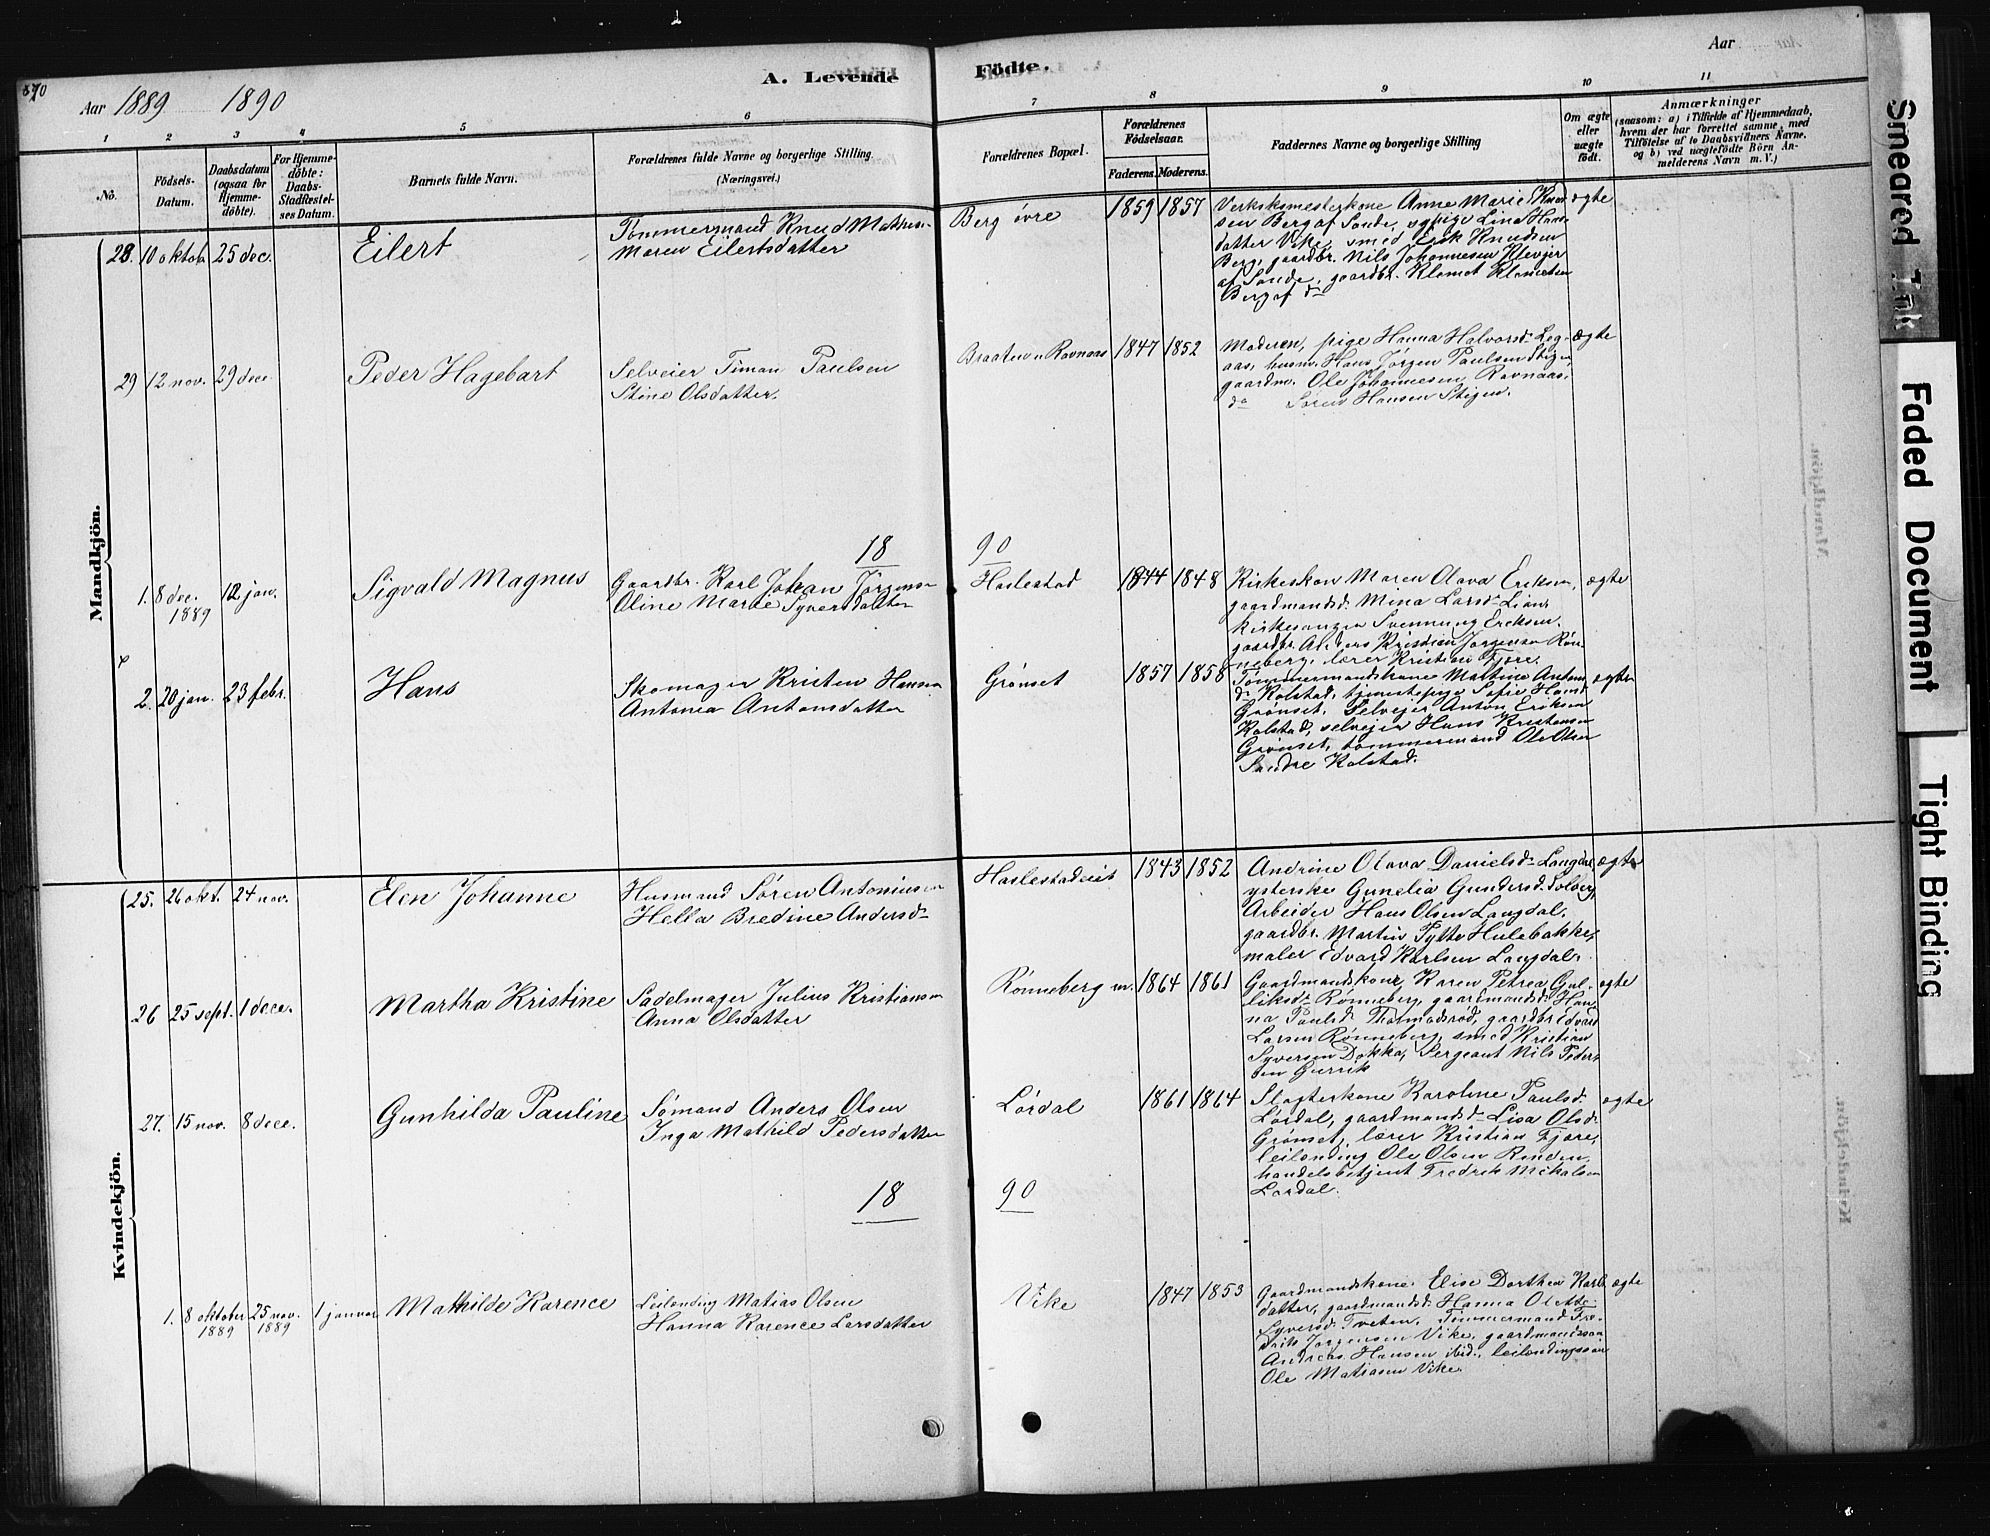 Aar 1889 1890
A. Levende
Födte.
Aar
1
2
3
4
5
6
7
8
9
10
11
No.
Födsels-
Datum.
Daabsdatum
(ogsaa for
Hjemme-
döbte).
For Hjemme-
döbte:
Daabs-
Stadfæstel-
ses Datum.
Barnets fulde Navn.
Forældrenes fulde Navne og borgerlige Stilling.
(Næringsvei.)
Forældrenes Bopæl.
Forældrenes
Födselsaar.
Faderens. Moderens.
Faddernes Navne og borgerlige Stilling
Om ægte
eller
uægte
födt.
Anmærkninger
(saasom: a) i Tilfælde af Hjemmedaab,
hvem der har forrettet samme, med
Tilföielse af to Daabsvidners Navne.
og b) ved uægtefödte Börn An-
melderens Navn m. V.)
Mandkjön.
28. 10 oktob. 25 dec.
Eilert
Tømmermand Knud
Maren Eilertsdatter
Berg øvre
1859 1857
Anne Marie
sen Berg af Sande, sypige Lina Hans-
datter Vike, smed Erik Knudsen
Berg, gaardbr. Nils Johannesen Klevjer
af Sande, gaardbr. Klemet Klemetsen
Berg af do
ægte
29 12 nov. 29 dece.
Peder Hagebart
Selveier Timan Paulsen
Stine Olsdatter.
Braaten u. Ravnaas
1847 1852
Moderen, pige Hanna Halvorsd. Leg-
aas, husm. Hans Jørgen Paulsen Stigen
gaardm. Ole Johannesen Ravnaas,
do Søren Hansen Stigen.
ægte
18
90
1. 8 dec. 12 jan.
1889
Sigvald Magnus
Gaardbr. Karl Johan Jørgensen
Oline Marie Syversdatter
Haslestad
1844 1848
Kirkeskon Maren Olava Eriksen,
gaardmandsd. Mina Larsd. Lian,
kirkesanger Svennung Eriksen.
gaardbr. Anders Kristian Jørgensen Røn-
neberg, lærer Kristian Fjære.
ægte
2. 20 jan. 23 febr.
Hans
Skomager Kristen Hansen
Antonia Antonsdatter
Grønset
1857 1858
Tømmermandskone Martine Antons
d. Kolstad, tjenestepige Sofie Hansd.
Grønset. Selvejer Anton Eriksen
Kolstad, selvejer Hans Kristensen
Grønset, tømmermand Ole Olsen
Søndre Kolstad.
ægte
Kvindekjön.
25. 26 okt. 24 nov.
Elen Johanne
Husmand Søren Antoniusen
Hella Bredine Andersd.
Haslestadeiet
1843 1852
Andrine Olava Danielsd. Langdal,
Gunelia Gundersd. Solberg,
Arbeider Hans Olsen Langdal,
gaardbr. Martin Tytto Hulebakke,
maler Edvard Karlsen Langdal.
ægte
26 25 sept. 1 dece.
Martha Kristine
Sadelmager Julius Kristiansen
Anna Olsdatter
Rønneberg m.
1864 1861
Gaardmandskone Karen Petrea Gul-
liksd. Rønneberg, gaardmandsd. Han-
na Paulsd. Thormodsrød, gaardbr. Edvard
Larsen Rønneberg, smed Kristian
Syversen Dokka, Sergeant Nils Peder-
sen
ægte
27. 15 nov. 8 dece.
Gunhilda Pauline
Sømand Anders Olsen
Inga Mathild Pedersdatter
Lørdal
1861 1864
Slagterkone Karoline Paulsd.
Lørdal, gaardmandsd. Lisa Olsd.
Grønset, lærer Kristian Fjære,
leilending Ole Olsen
handelsbetjent Fredrik Mikalsen
Lørdal.
ægte
18
90
1. 8 oktober 25 nov. 1 januar
1889 1889
Mathilde Karence
Leilending Matias Olsen
Hanna Karence Larsdatter
Vike
1847 1853
Gaardmandskone Elise Dorthea Karls
datter, gaardmandsd. Hanna Olette
Syversd. Tveten, Tømmermand Fre-
drik Jørgensen Vike, gaardmandssøn
Andreas Hansen ibid., leilendingssøn
Ole Matiasen Vike.
ægte
Smeared Ink
Faded Document
Tight Binding